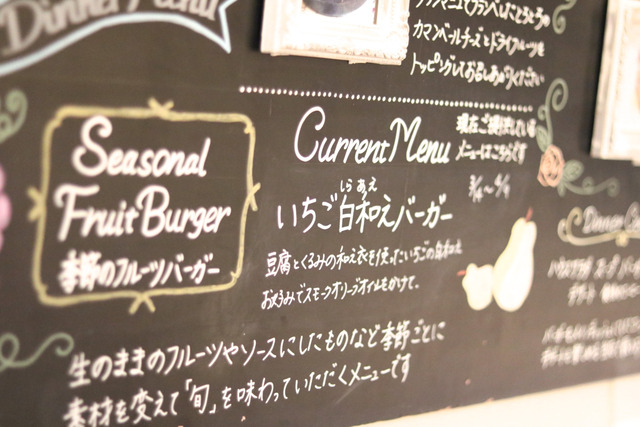 Dinner Menu
カマンベールチーズとドライフルーツを
トッピングしてお召しあがりください
Seasonal
Fruit Burger
季節のフルーツバーガー
Current Menu
現在ご提供している
メニューはこちらです
しらあえ
いちご白和えバーガー
豆腐とくるみの和え衣を使ったいちごの白和え
お好みでスモークオリーブオイルをかけて。
生のままのフルーツやソースにしたものなど季節ごとに
素材を変えて「旬」を味わっていただくメニューです
Dinner